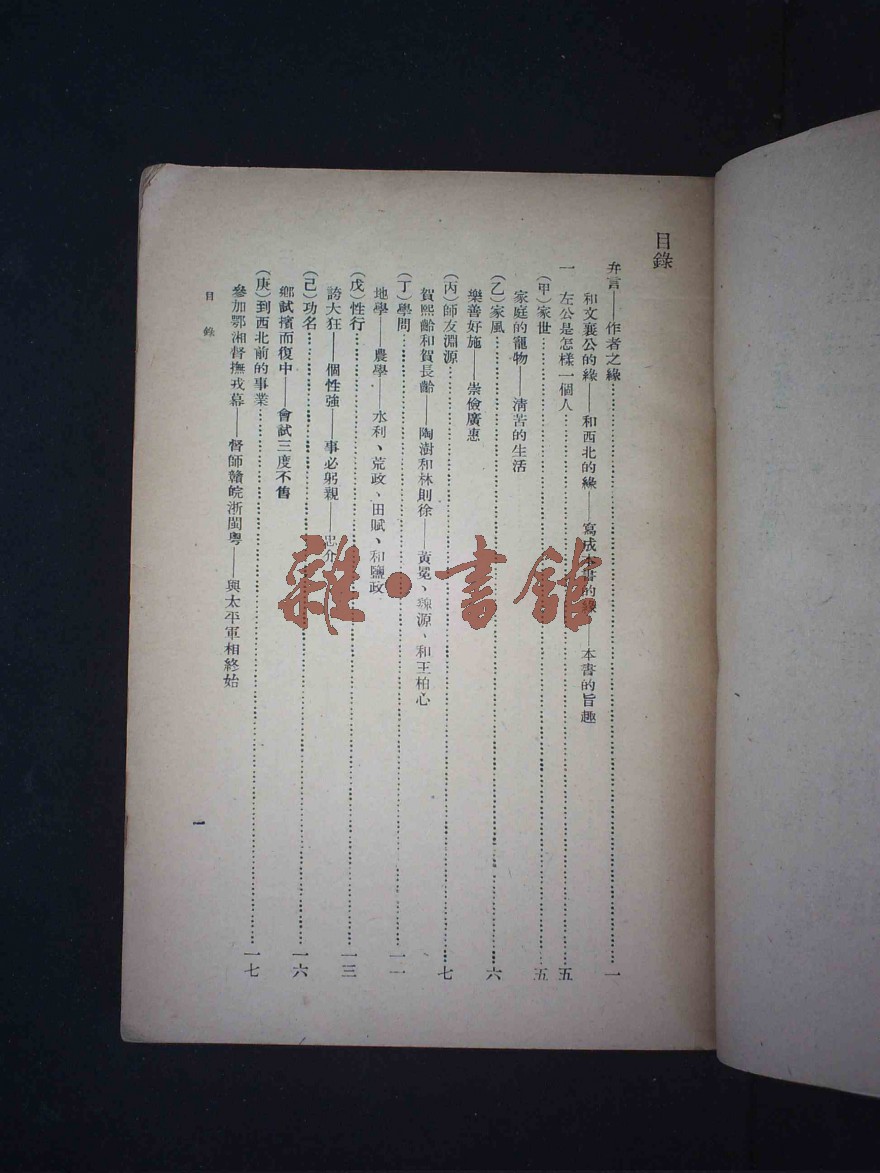 目錄
弁言——作者之緣………一
和文襄公的緣——和西北的緣——寫成本書的緣——本書的旨趣
一 左公是怎樣一個人………五
(甲)家世………五
家庭的寵物——清苦的生活
(乙)家風………六
樂善好施——崇儉廣惠
(丙)師友淵源………七
賀熙齡和賀長齡——陶澍和林則徐——黃冕、魏源、和王柏心
(丁)學問………一一
地學——農學——水利、荒政、田賦、和鹽政
(戊)性行………一三
誇大狂——個性強——事必躬親——忠介
(己)功名………一六
鄉試擯而復中——會試三度不售
(庚)到西北前的事業………一七
參加鄂湘督撫戎幕——督師贛皖浙閩粵——與太平軍相終始
目錄
一
雜·書館